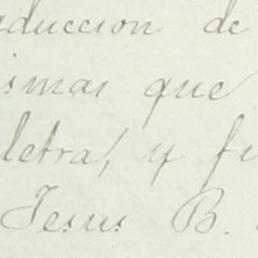 aducción de
ismas que
letra, y fi
Jesus B.